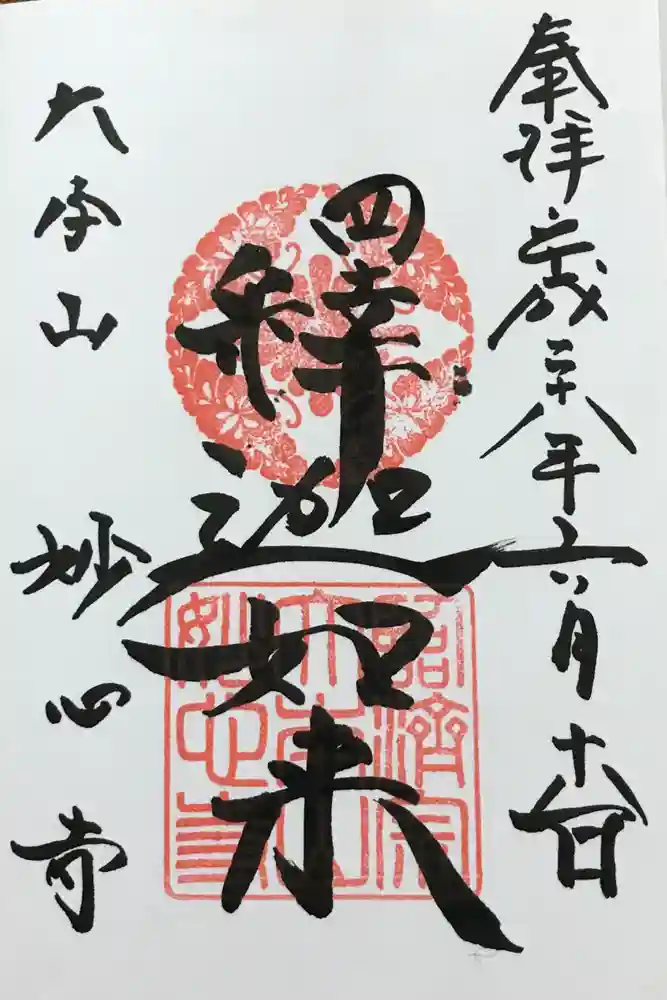 奉拝 平成二十八年六月十八日
釋迦如来
大本山 妙心寺
臨濟宗
大本山
妙心寺